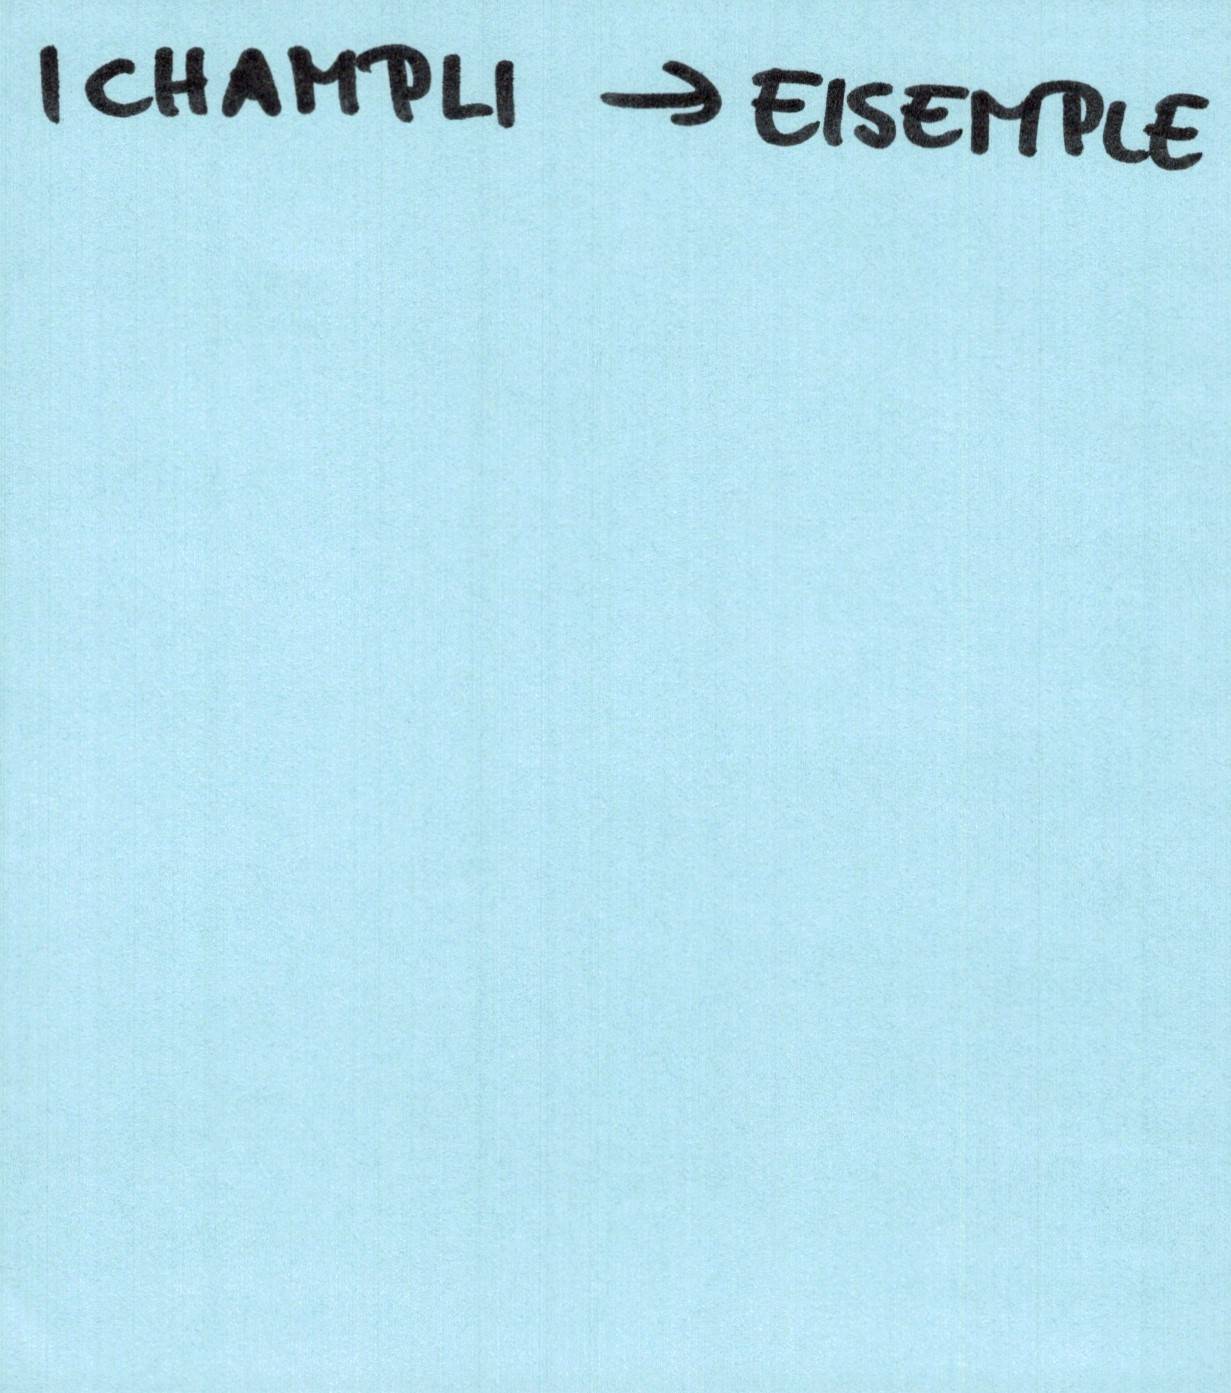 ICHAMPLI → EISEMPLE